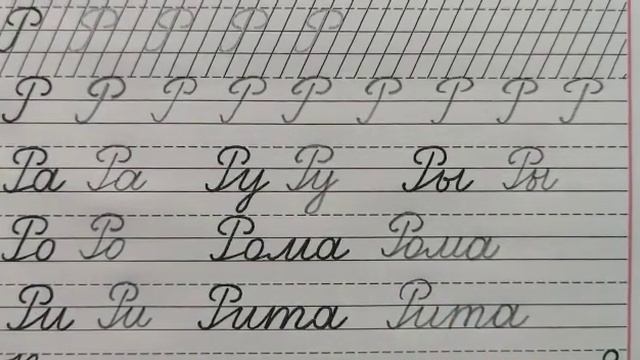 Р Р Р Р Р
Р Р Р Р Р Р Р Р Р
Ра Ра Ру Ру Ры Ры
Ро Ро Рома Рома
Ри Ри Рита Рита